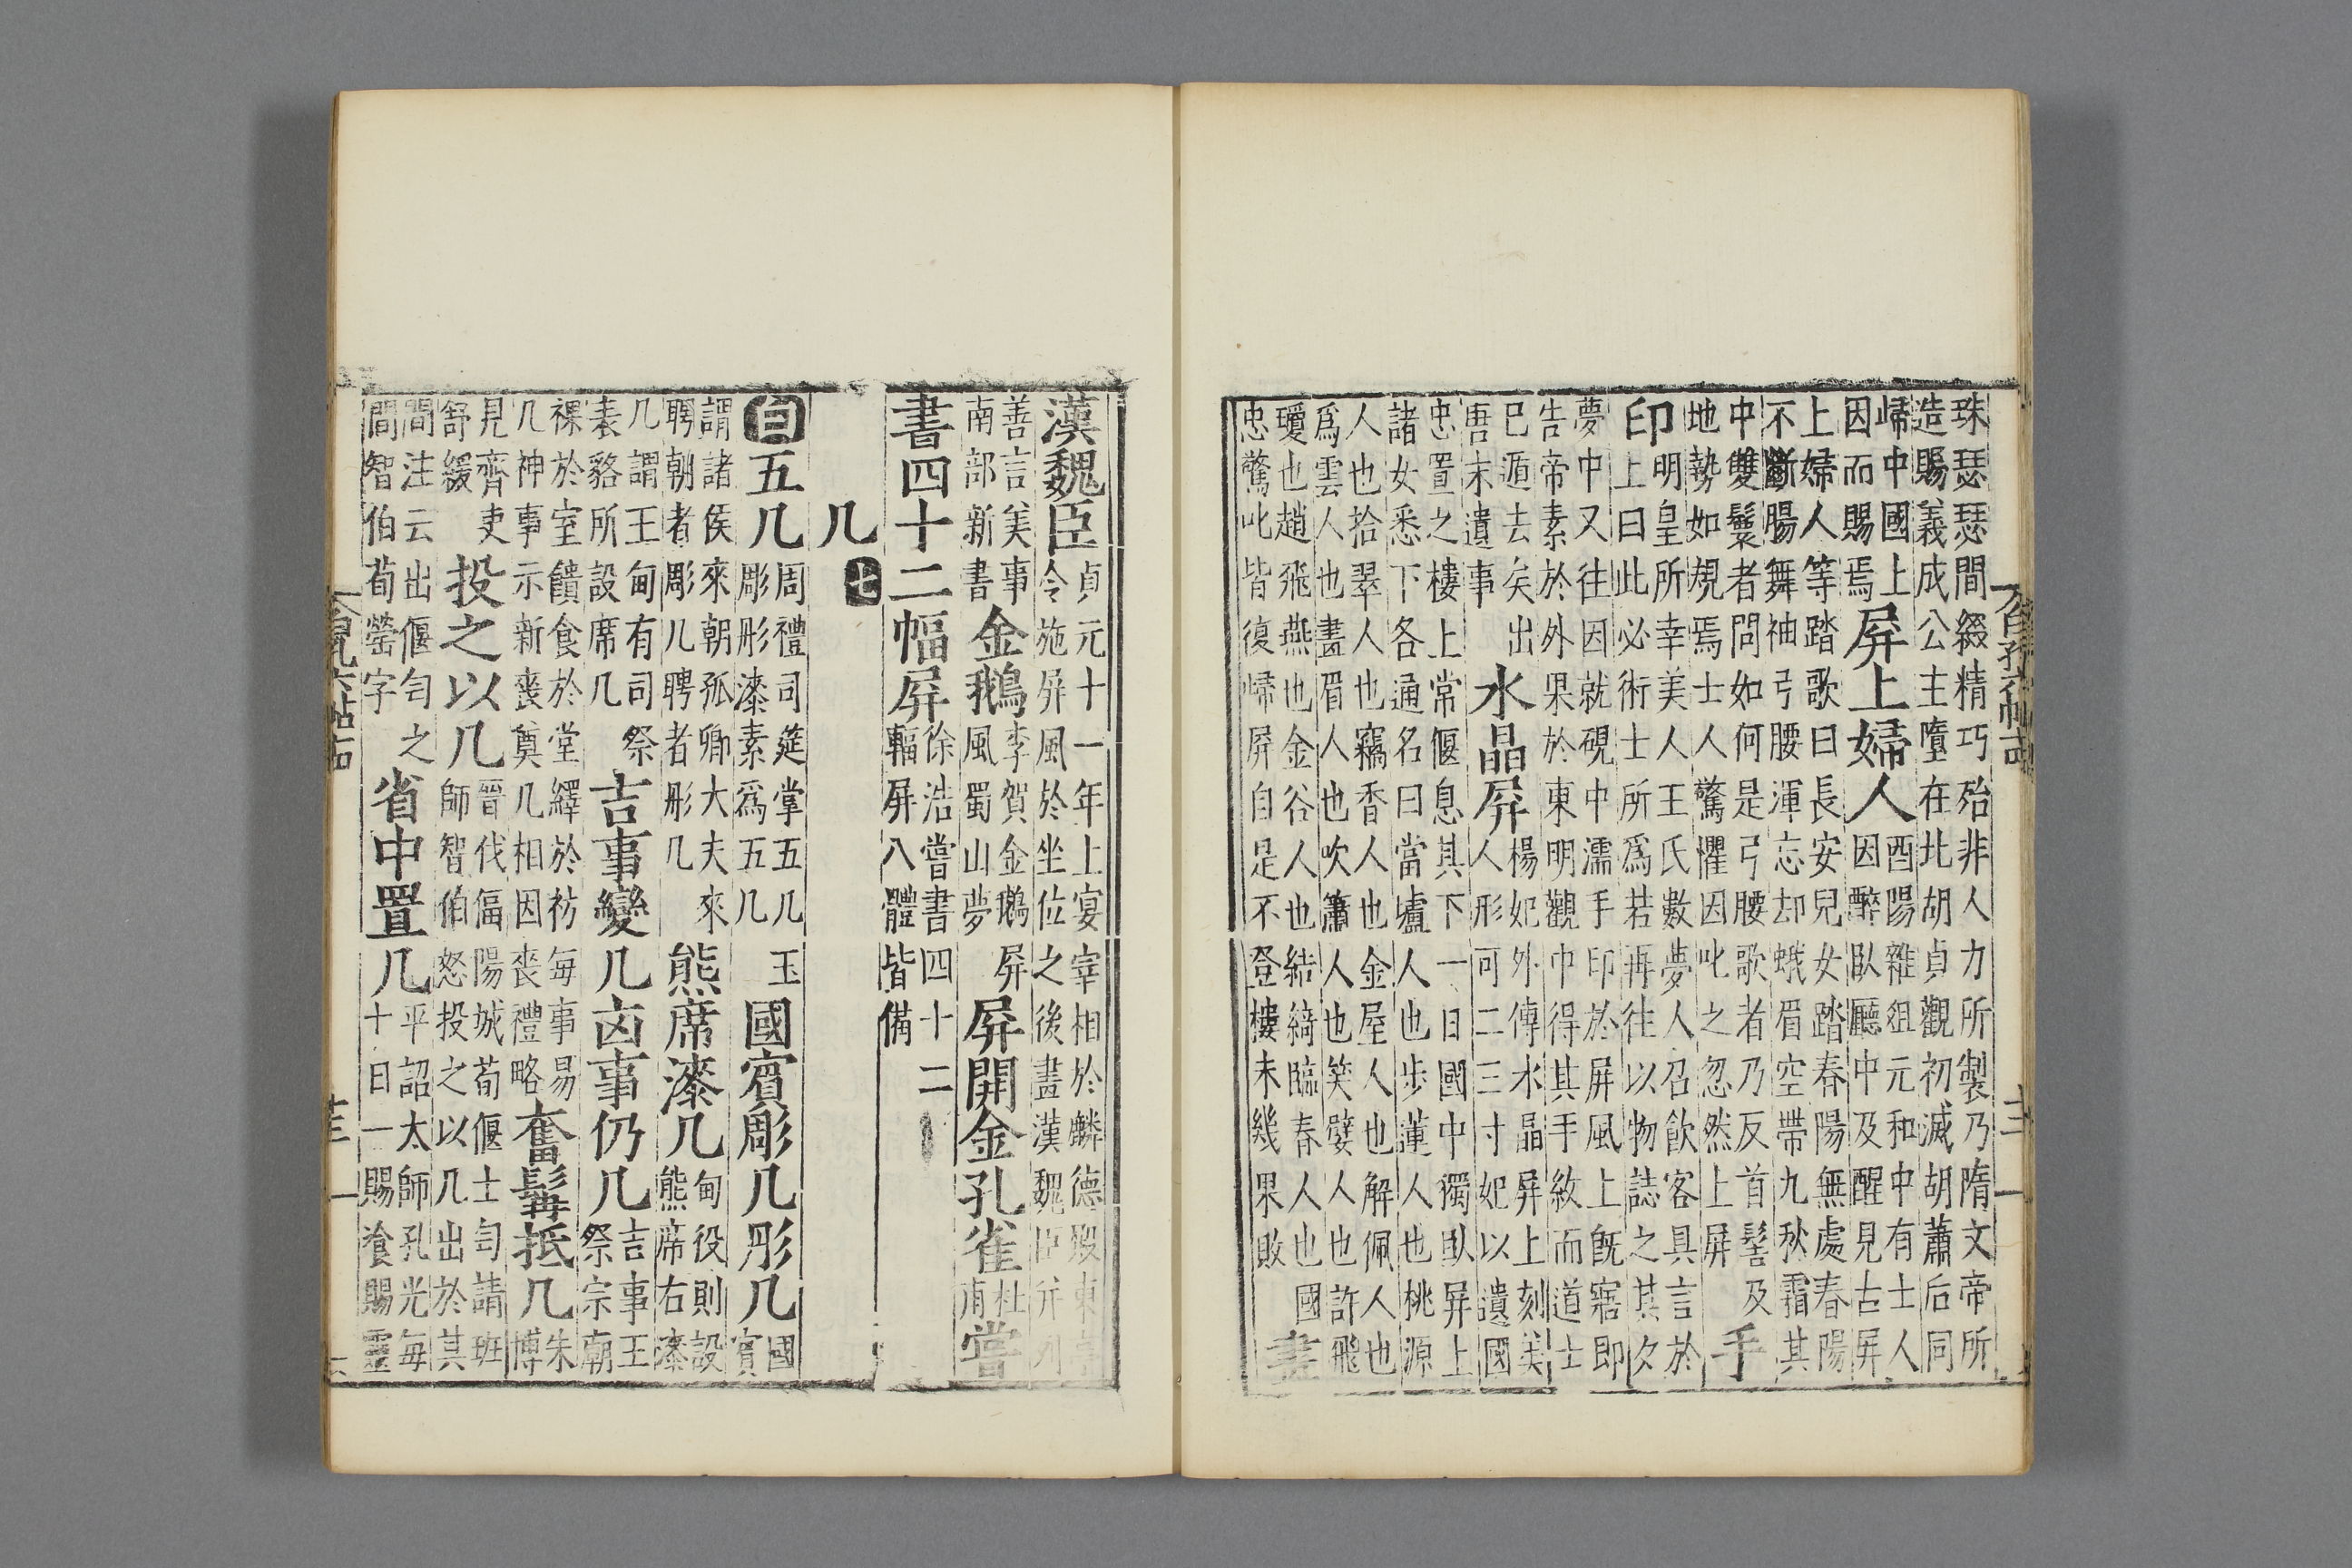 珠瑟瑟間綴精巧殆非人力所製乃隋文帝所
造賜義成公主墮在北胡貞觀初滅胡蕭后同
歸中國上
因而賜焉
屏上婦人
酉陽雜俎元和中有士人
因醉臥廳中及醒見古屏
上婦人等踏歌曰長安兒女踏春陽無處春陽
不斷腸舞袖弓腰渾忘却蛾眉空帶九秋霜其
中雙鬟者問如何是弓腰歌者乃反首髻及
地勢如規焉士人驚懼因叱之忽然上屏
手
印
明皇所幸美人王氏數夢人召飲客具言於
上曰此必術士所爲若再往以物誌之其夕
夢中又往因就硯中濡手印於屏風上旣寤即
告帝素於外果於東明觀中得其手紋而道士
已遁去矣出
唐末遺事
水晶屏
楊妃外傳水晶屏上刻美
人形可二三寸妃以遺國
忠置之樓上常偃息其下一日國中獨臥屏上
諸女悉下各通名曰當壚人也步蓮人也桃源
人也拾翠人也竊香人也金屋人也解佩人也
爲雲人也畫眉人也吹簫人也笑躄人也許飛
瓊也趙飛燕也金谷人也結綺臨春人也國
忠驚叱皆復歸屏自是不登樓未幾果敗
畫
漢魏臣
貞元十一年上宴宰相於麟德殿東
令施屏風於坐位之後畫漢魏臣并列
善言美事
南部新書
金鵝
李賀金鵝屏
風蜀山夢
屏開金孔雀
杜
甫
嘗
書四十二幅屏
徐浩嘗書四十二
輻屏八體皆備
几 七
白五几
周禮司筵掌五几玉
彫彤漆素爲五几
國賓彫几彤几
國
賓
謂諸侯來朝孤卿大夫來
聘朝者彫几聘者彤几
熊席漆几
甸役則設
熊席右漆
几謂王甸有司祭
表貉所設席几
吉事變几凶事仍几
吉事王
祭宗廟
祼於室饋食於堂繹於祊每事易
几神事示新喪奠几相因喪禮略
奮髯抵几
朱
博
見齊吏
舒緩
投之以几
晉伐偪陽城荀偃士匄請班
師智伯怒投之以几出於其
間注云出偃匄之
間智伯荀罃字
省中置几
平詔太師孔光每
十日一賜飡賜靈